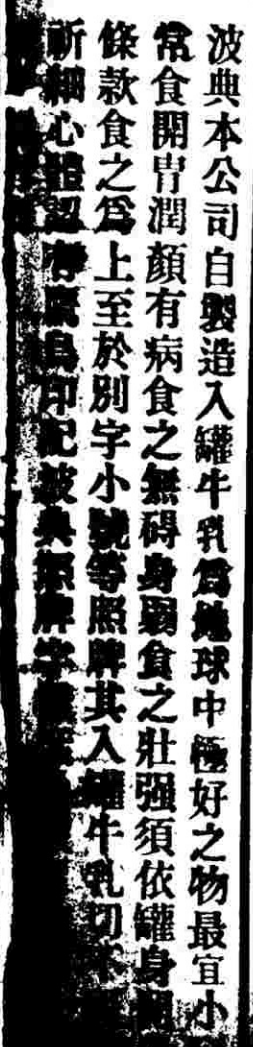 波典本公司自製造入罐牛乳爲地球中極好之物最宜小
常食開胃潤顏有病食之無碍身弱食之壯强須依罐身
條款食之爲上至於別字小號等照牌其入罐牛乳切
祈細心體認 爲印記波典招牌字